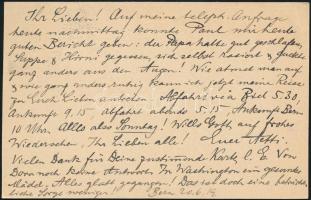 Ihr Lieben! Auf meine teleph. Anfrage
heute nachmittag konnte Paul mir heute
guten Bericht geben: der Papa hatte gut geschlafen,
Suppe & Hörnli gegessen, sich selbst rasiert &
ganz anders aus den Augen! Wie atmet man auf
& wie ganz anders ruhig kann ich jetzt meine Reise
zu Euch Lieben antreten. Abfahrt via Biel 5.30,
Ankunft 9.15. abfahrt abends 5.15, Ankunft Bern
10 Uhr. Alles also Sonntag! Wills Gott auf frohes
Wiedersehn, Ihr Lieben alle! Euer Netti.
Vielen Dank für Deine zustimmende Karte, l. E. Von
Dora noch keine Antwort. In Washington ein gesundes
Mädel, Alles glatt gegangen! Das ist doch eine
Sorge weniger! Bern 20.6.19